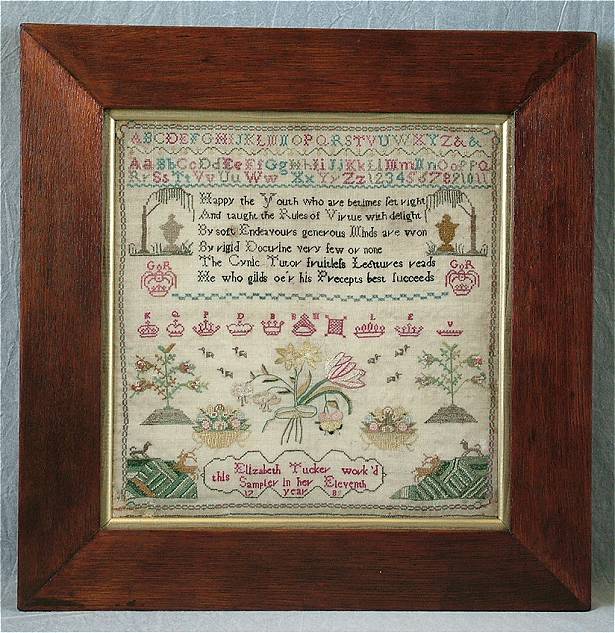 ABCDEFGHIJKLMNOPQRSTVUWXYZ&&
AaBbCcDdEeFfGgHhIiJjKkLlMmNnOoPpQ
RrSsTtVvUuWwXxYyZz1234567891011
Happy the Youth who are betimes set right
And taught the Rules of Virtue with delight
By soft Endeavours generous Minds are won
By rigid Doctrine very few or none
The Cynic Tutor fruitless Lectures reads
He who gilds oe'r his Precepts best succeeds
G R
G R
K Q P D B L E V
Elizabeth Tucker work'd
this Sampler in her Eleventh
17 year 8